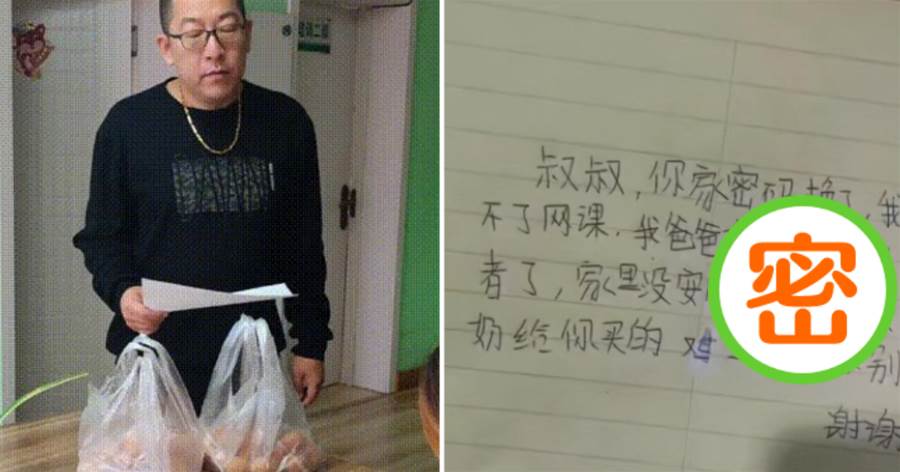 培训二部
叔叔，你家密码换了，我
不了网课，我爸爸
者了，家里没安
奶给你买的 鸡
别
谢谢
密